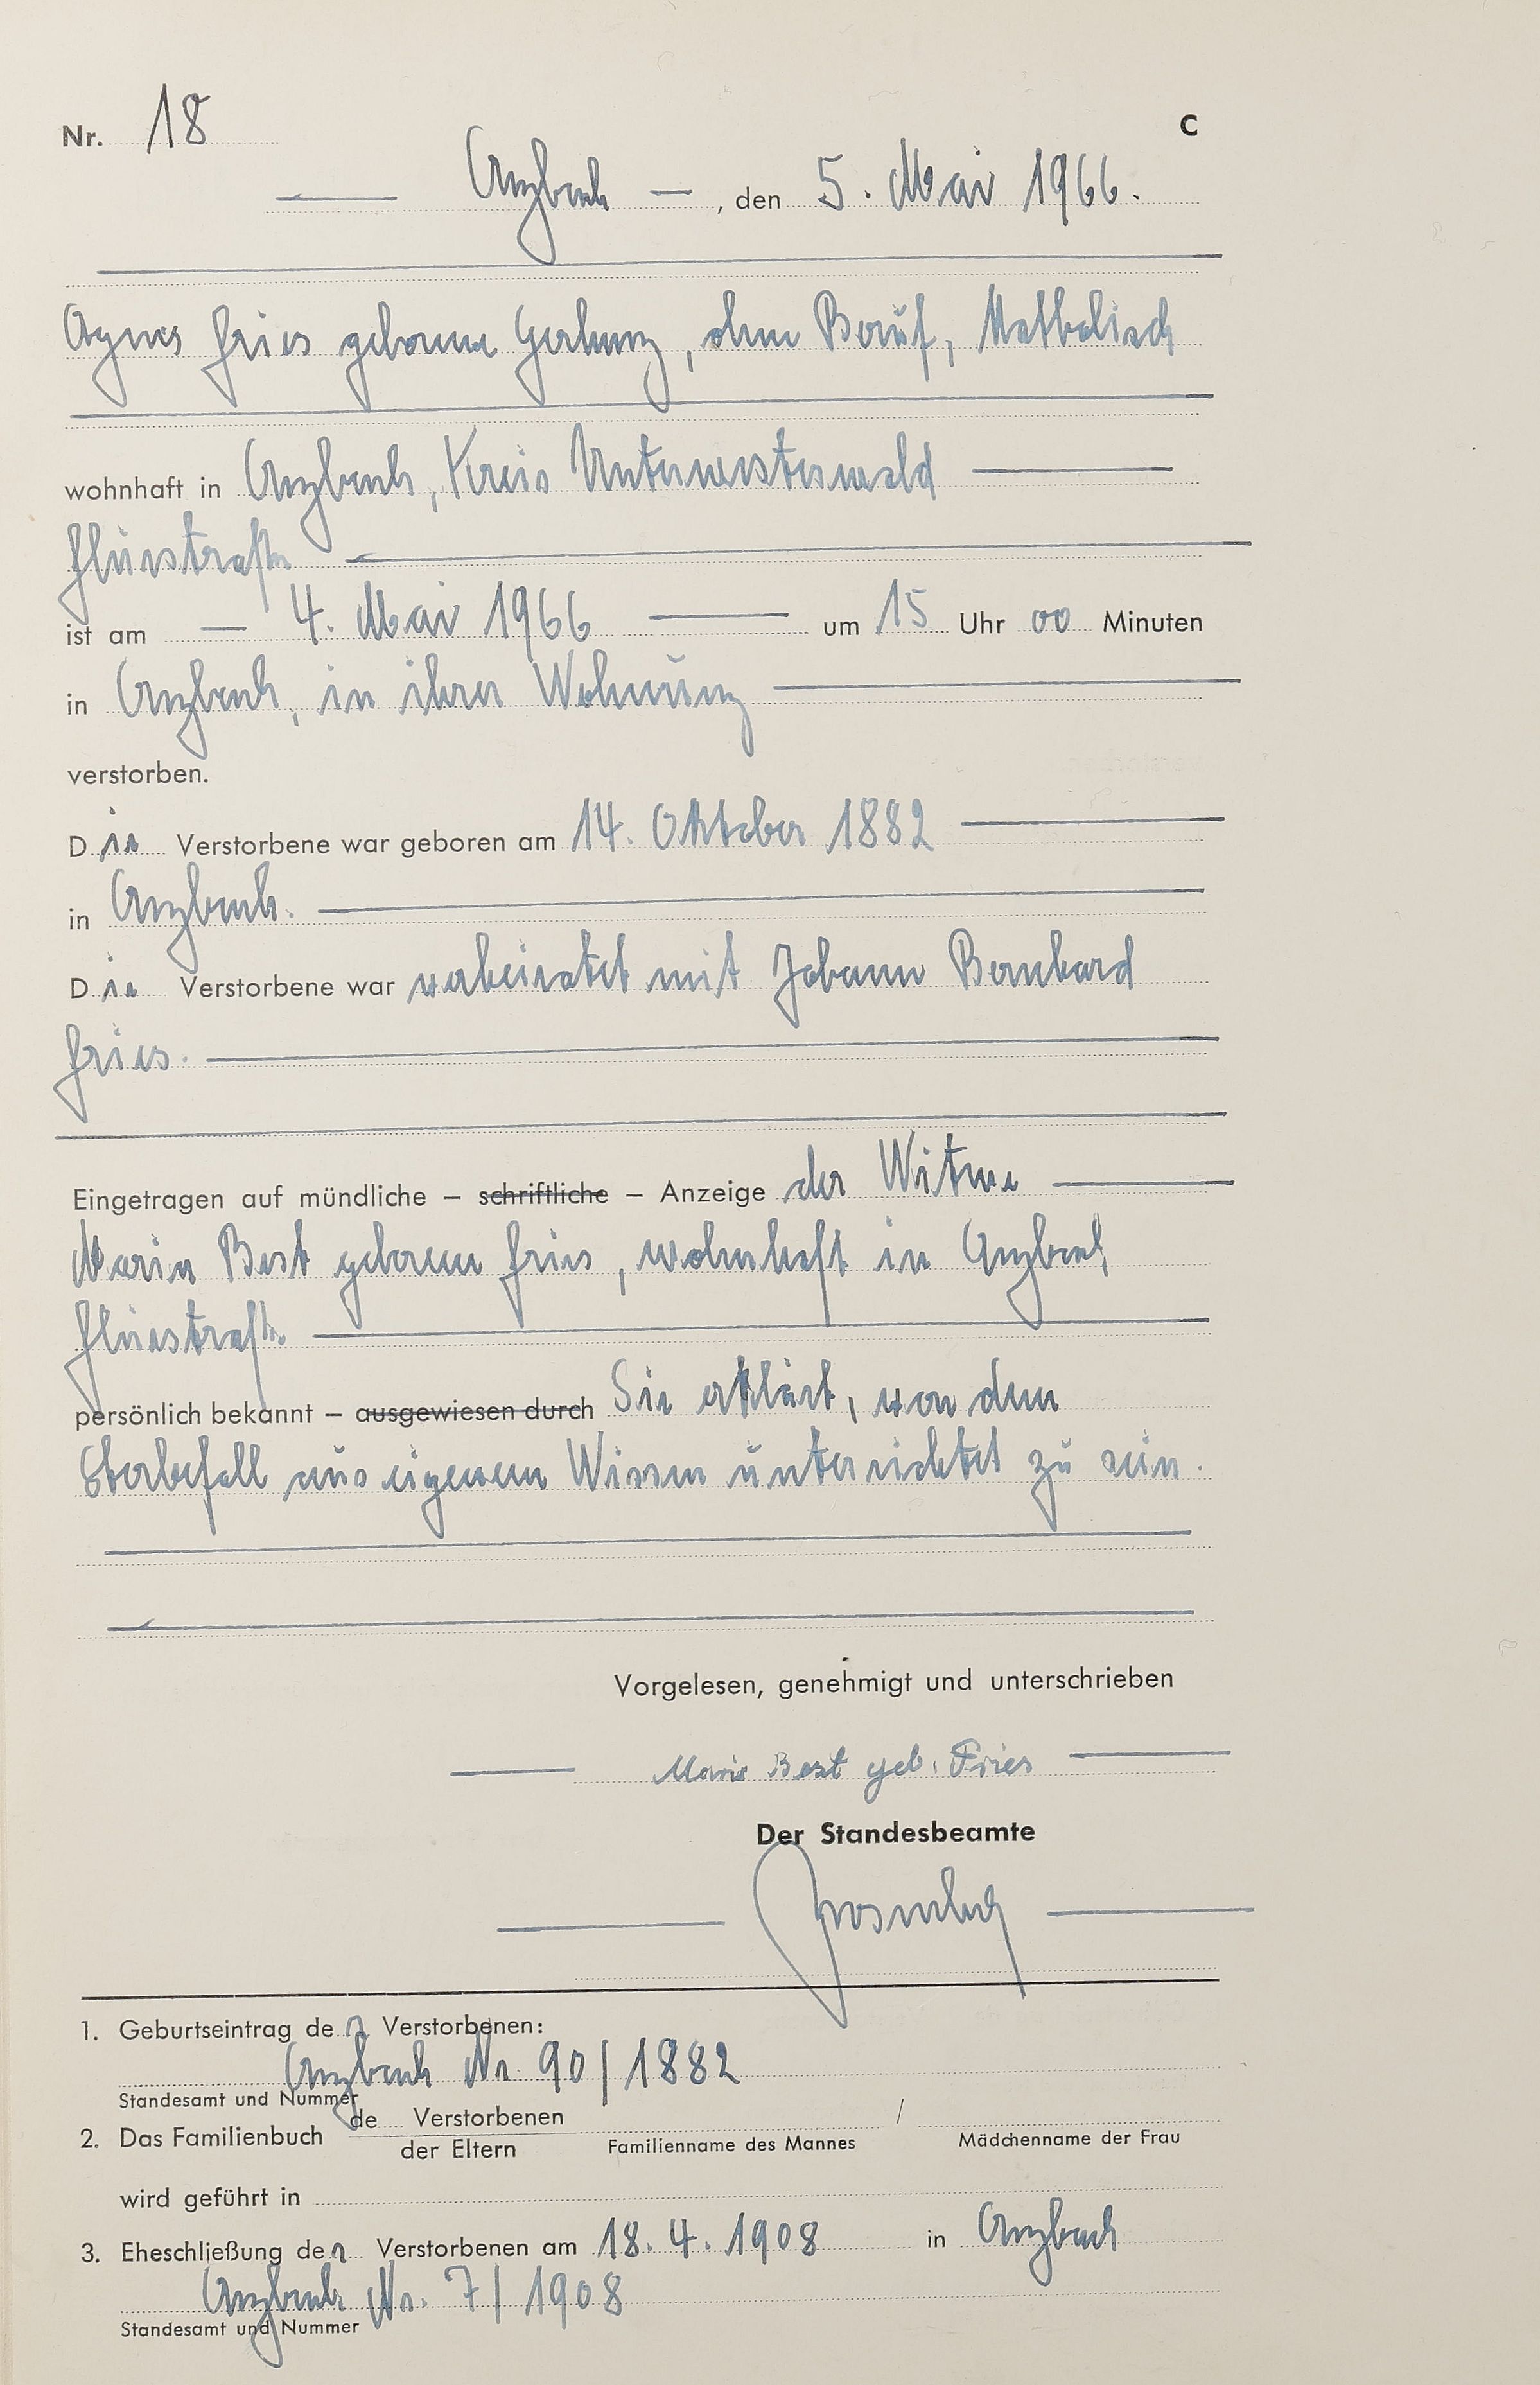 Nr. 18
C
Arzbach, den 5. Mai 1966.
Agnes Fries geborene Gerharz, ohne Beruf, Katholisch
wohnhaft in Arzbach, Kreis Unterwesterwald
ist am 4. Mai 1966 um 15 Uhr 00 Minuten
in Arzbach, in ihrer Wohnung
verstorben.
Die Verstorbene war geboren am 14. Oktober 1882
in Arzbach.
Die Verstorbene war verheiratet mit Johann Bernhard
Fries.
Eingetragen auf mündliche – schriftliche – Anzeige der Witwe
Maria Best geborene Fries, wohnhaft in Arzbach,
persönlich bekannt – ausgewiesen durch Sie erklärt, von dem
Sterbefall aus eigenem Wissen unterrichtet zu sein.
Vorgelesen, genehmigt und unterschrieben
Maria Best geb. Fries
Der Standesbeamte
1. Geburtseintrag der Verstorbenen:
Arzbach Nr. 90/1882
Standesamt und Nummer
2. Das Familienbuch de Verstorbenen /
der Eltern Familienname des Mannes Mädchenname der Frau
wird geführt in
3. Eheschließung der Verstorbenen am 18.4.1908 in Arzbach
Arzbach Nr. 7/1908
Standesamt und Nummer